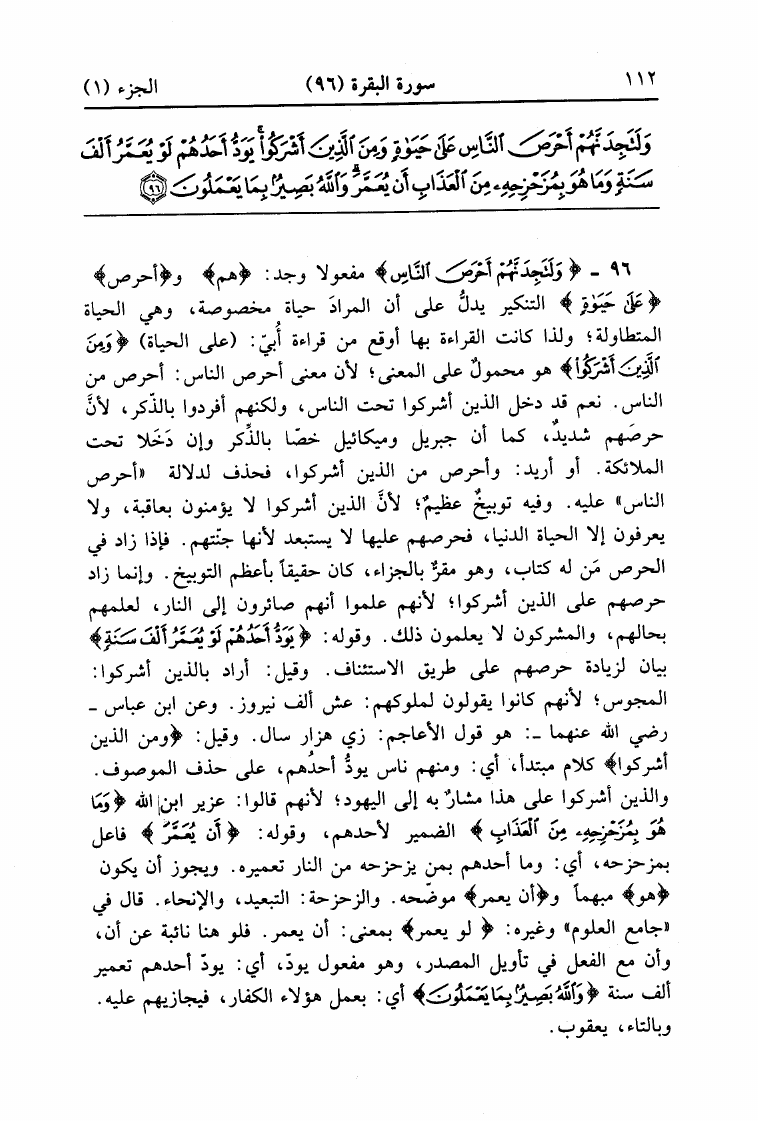 ١١٢ سورة البقرة (٩٦) الجزء (١)
وَلَتَجِدَنَّهُمْ أَحْرَصَ ٱلنَّاسِ عَلَىٰ حَيَوٰةٍ وَمِنَ ٱلَّذِينَ أَشْرَكُوا۟ ۚ يَوَدُّ أَحَدُهُمْ لَوْ يُعَمَّرُ أَلْفَ
سَنَةٍ وَمَا هُوَ بِمُزَحْزِحِهِۦ مِنَ ٱلْعَذَابِ أَن يُعَمَّرَ ۗ وَٱللَّهُ بَصِيرٌۢ بِمَا يَعْمَلُونَ ﴿٩٦﴾
٩٦ ـ ﴿وَلَتَجِدَنَّهُمْ أَحْرَصَ ٱلنَّاسِ﴾ مفعولا وجد: ﴿هم﴾ و﴿أحرص﴾
﴿عَلَىٰ حَيَوٰةٍ﴾ التنكير يدلُّ على أن المرادَ حياة مخصوصة، وهي الحياة
المتطاولة؛ ولذا كانت القراءة بها أوقع من قراءة أُبيّ: (على الحياة) ﴿وَمِنَ
ٱلَّذِينَ أَشْرَكُوا۟﴾ هو محمولٌ على المعنى؛ لأن معنى أحرص الناس: أحرص من
الناس. نعم قد دخل الذين أشركوا تحت الناس، ولكنهم أفردوا بالذّكر، لأنَّ
حرصَهم شديدٌ، كما أن جبريل وميكائيل خصّا بالذِّكر وإن دَخَلا تحت
الملائكة. أو أريد: وأحرص من الذين أشركوا، فحذف لدلالة «أحرص
الناس» عليه. وفيه توبيخٌ عظيمٌ؛ لأنَّ الذين أشركوا لا يؤمنون بعاقبة، ولا
يعرفون إلا الحياة الدنيا، فحرصهم عليها لا يستبعد لأنها جنّتهم. فإذا زاد في
الحرص مَن له كتاب، وهو مقرٌّ بالجزاء، كان حقيقاً بأعظم التوبيخ. وإنما زاد
حرصهم على الذين أشركوا؛ لأنهم علموا أنهم صائرون إلى النار، لعلمهم
بحالهم، والمشركون لا يعلمون ذلك. وقوله: ﴿يَوَدُّ أَحَدُهُمْ لَوْ يُعَمَّرُ أَلْفَ سَنَةٍ﴾
بيان لزيادة حرصهم على طريق الاستئناف. وقيل: أراد بالذين أشركوا:
المجوس؛ لأنهم كانوا يقولون لملوكهم: عش ألف نيروز. وعن ابن عباس ـ
رضي الله عنهما ـ: هو قول الأعاجم: زي هزار سال. وقيل: ﴿ومن الذين
أشركوا﴾ كلام مبتدأ، أي: ومنهم ناس يودُّ أحدُهم، على حذف الموصوف.
والذين أشركوا على هذا مشارٌ به إلى اليهود؛ لأنهم قالوا: عزير ابن الله ﴿وَمَا
هُوَ بِمُزَحْزِحِهِۦ مِنَ ٱلْعَذَابِ﴾ الضمير لأحدهم، وقوله: ﴿أَن يُعَمَّرَ﴾ فاعل
بمزحزحه، أي: وما أحدهم بمن يزحزحه من النار تعميره. ويجوز أن يكون
﴿هو﴾ مبهماً و﴿أن يعمر﴾ موضّحه. والزحزحة: التبعيد، والإنحاء. قال في
«جامع العلوم» وغيره: ﴿لو يعمر﴾ بمعنى: أن يعمر. فلو هنا نائبة عن أن،
وأن مع الفعل في تأويل المصدر، وهو مفعول يودّ، أي: يودّ أحدهم تعمير
ألف سنة ﴿وَٱللَّهُ بَصِيرٌۢ بِمَا يَعْمَلُونَ﴾ أي: بعمل هؤلاء الكفار، فيجازيهم عليه.
وبالتاء، يعقوب.